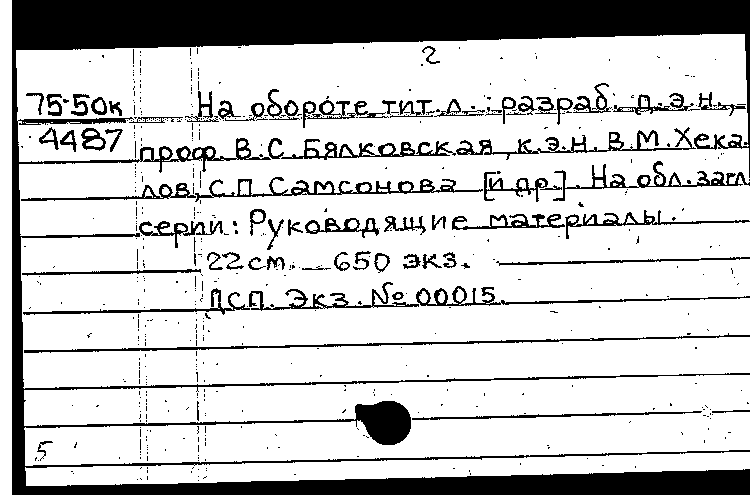 2
75-50к На обороте тит.л.: разраб. д.э.н.,
4487 проф. В.С.Бялковская, к.э.н. В.М.Хека
лов, С.П Самсонова [и др.]. На обл. загл
серии: Руководящие материалы.
22см. 650 экз.
ДСП. Экз. № 00015.
5